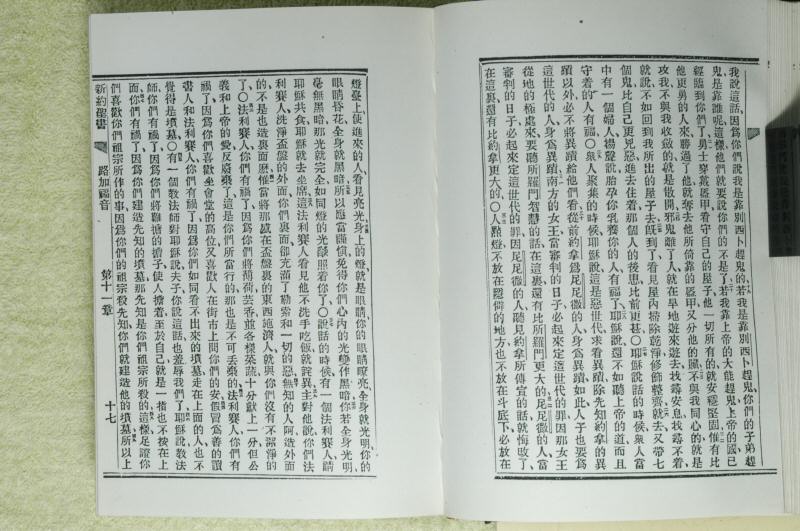 我說這話、因爲你們說我是靠別西卜趕鬼的、若我是靠別西卜趕鬼、你們的子弟趕
鬼、是靠誰呢、這樣他們就要說你們的不是了、若我靠上帝的大能趕鬼、上帝的國已
經臨到你們了、勇士穿戴盔甲、看守自己的屋子、他一切所有的、就安穩堅固、惟有比
他更勇的人來、勝過了他、就奪去他所倚靠的盔甲、又分他的贓、不與我同心的、就是
攻我、不與我收斂的、就是散開、邪鬼離了人、就在旱地遊來遊去、找尋安息、找尋不着、
就說、不如回到我所出的屋子去、旣到了、看見屋內掃除乾淨、修飾整齊、就去又帶七
個鬼、比自己更兇惡、進去住着、那個人的後患、比前更甚〇耶穌說話的時候、衆人當
中有一個婦人、揚聲說、胎孕你乳養你的人有福了、耶穌說、還不如聽上帝的道、而且
守着的人有福〇衆人聚集的時候、耶穌說、這是惡世代、求看異蹟、除先知約拿的異
蹟以外、必不將異蹟給他們看、從前約拿爲尼尼微的人、身爲異蹟、如此人子也要爲
這世代的人、身爲異蹟、南方的女王、當審判的日子、必起來定這世代的罪、因那女王
從地的極處來、要聽所羅門智慧的話、在這裏還有比所羅門更大的、尼尼微的人、當
審判的日子、必起來定這世代的罪、因尼尼微的人、聽見約拿所傳宣的話、就悔改了、
在這裏還有比約拿更大的〇人點燈、不放在隱僻的地方、也不放在斗底下、必放在
燈臺上、使進來的人、看見亮光、身上的燈、就是眼睛、你的眼睛瞭亮、全身就光明、你的
眼睛昏花、全身就黑暗、所以應當謹愼、免得你們心內的光、變作黑暗、你若全身光明、
毫無黑暗、那光就完全、如同燈的光燄照着你了〇說話的時候、有一個法利賽人、請
耶穌共食、耶穌就去坐席、這法利賽人、看見他不洗手吃飯、就詫異、主對他說、你們法
利賽人、洗淨杯盤的外面、你們裏面、卻充滿了勒索、和一切的惡、無知的人阿、造外面
的、不是也造裏面麽、惟當將那盛在杯盤裏的東西施濟人、就與你們沒有不潔淨的
了〇法利賽人、你們有禍了、因爲你們將薄荷芸香並各樣菜蔬、十分獻上一分、但公
義和上帝的愛反廢棄了、這是你們所當行的、那也是不可丟棄的、法利賽人、你們有
禍了、因爲你們喜歡坐會堂的高位、又喜歡人在街市上問你們的安、假冒爲善的讀
書人、和法利賽人、你們有禍了、因爲你們如同看不出來的墳墓、走在上面的人、也不
覺得是墳墓〇有一個敎法師對耶穌說、夫子、你說這話、也羞辱我們了、耶穌說、敎法
師、你們有禍了、因爲你們將難擔的擔子、使人擔着、至於自己、就是一指也不按在上
面、你們有禍了、因爲你們建造先知的墳墓、那先知是你們祖宗所殺的、這樣足證你
們喜歡你們祖宗所作的事、因爲你們的祖宗殺先知、你們就建造他的墳墓、所以上
新約聖書 路加福音 第十一章 十七